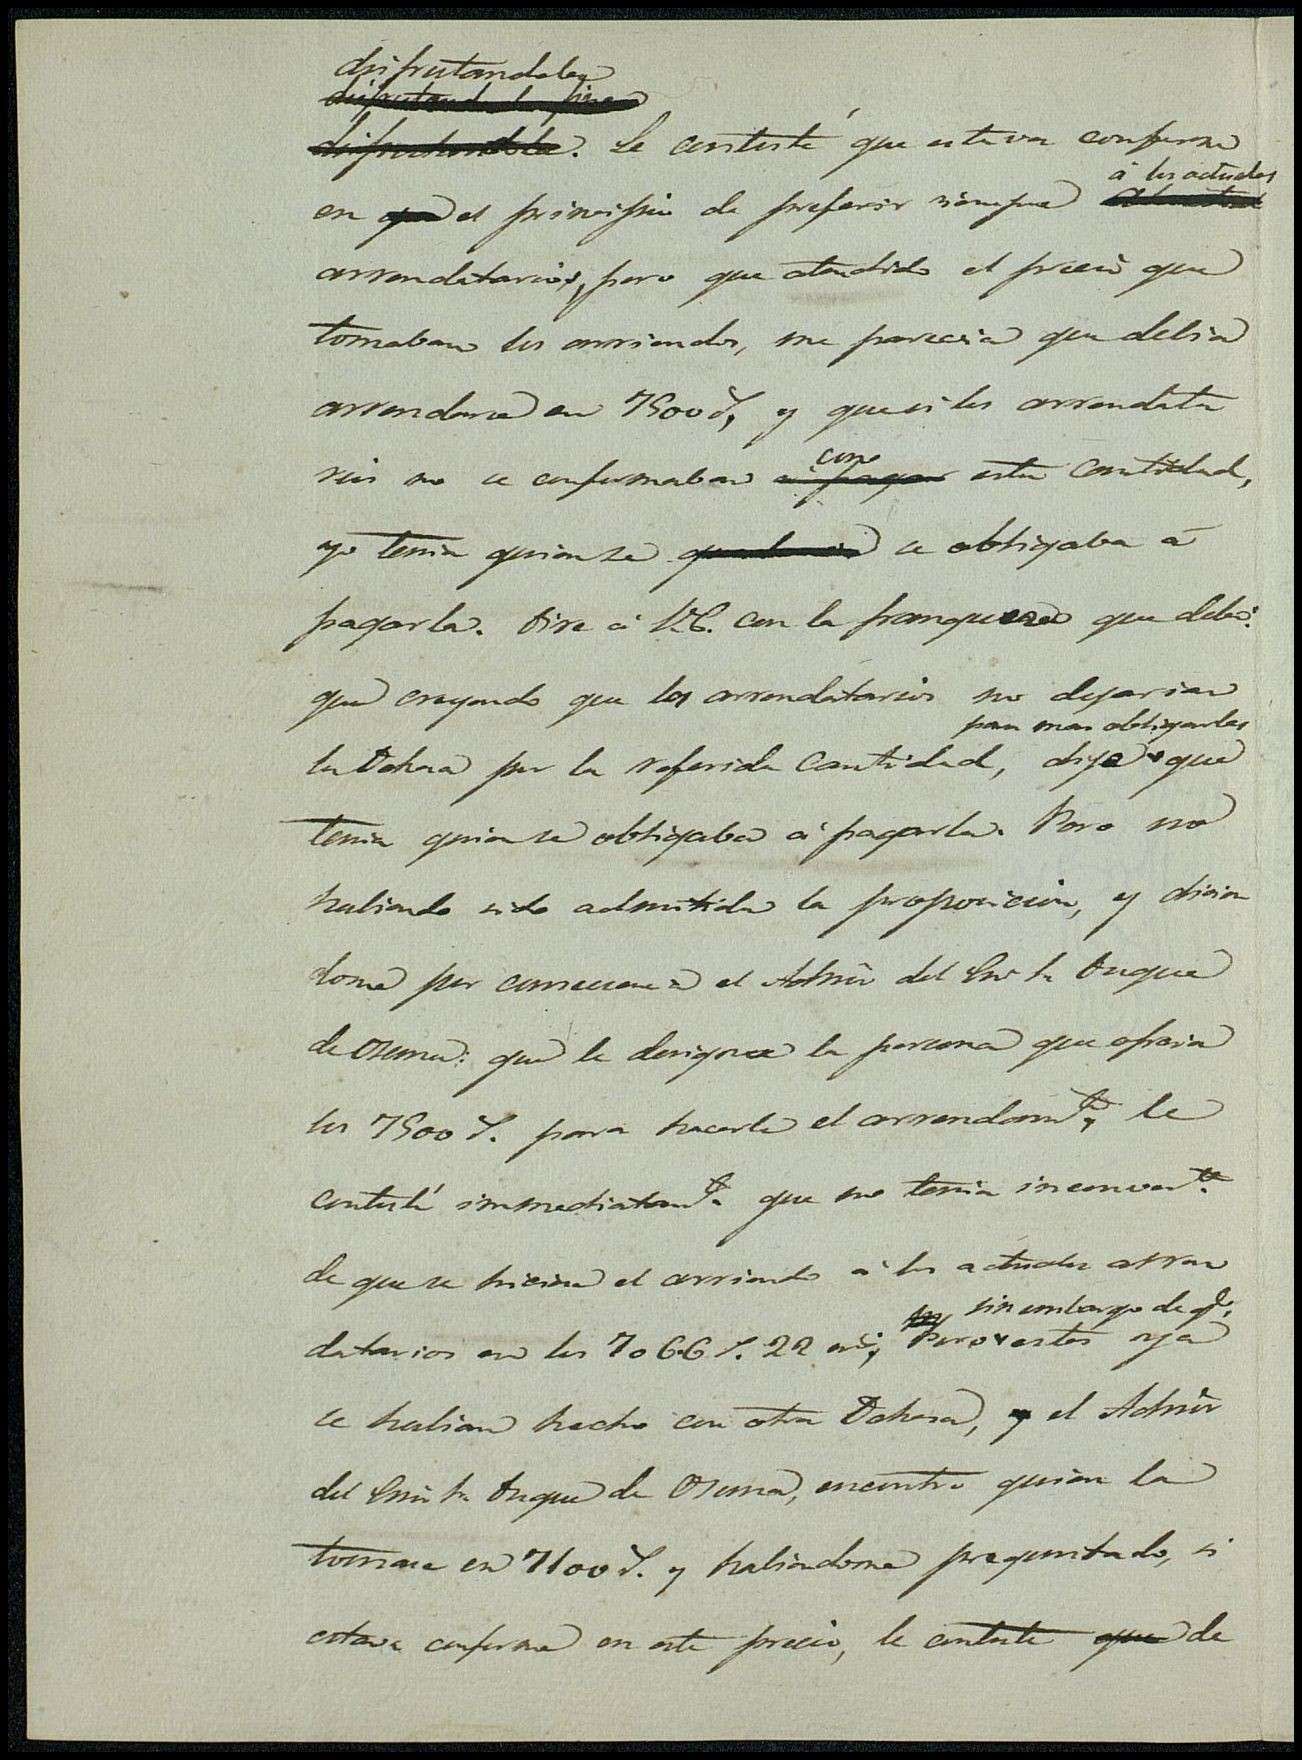 disfrutandoles
disfrutando la finca
disfrutandola. Le contesté que estava conforme
á los actuales
en que el principio de preferir siempre
arrendatarios, pero que atendido el precio que
tomaban los arriendos, me parecia que debia
arrendarse en 7500 r., y que si los arrendata
rios no se conformaban con a pagar esta cantidad,
yo tenia quien se se obligaba á
pagarla. Dire á V.E. con la franqueza que debo:
que creyendo que los arrendatarios no dejarian
para mas obligarles
la Dehesa por la referida cantidad, dije que
tenia quien se obligaba á pagarla. Pero no
habiendo sido admitida la proposicion, y dicien
dome por consecuencia el Admor del Exmo Sr. Duque
de Osuna: que le designase la persona que ofrecia
los 7500 r. para hacerle el arrendamto, le
contesté immediatamte. que no tenia inconvente.
de que se hiciese el arriendo á los actuales arren
sin embargo de qe.
datarios en los 7066 r. 22 ms; Pero estos ya
se habian hecho con otra Dehesa, y el Admor
del Exmo Sr. Duque de Osuna, encontro quien la
tomase en 7100 r. y habiendome preguntado, si
estava conforme en este precio, le conteste que de